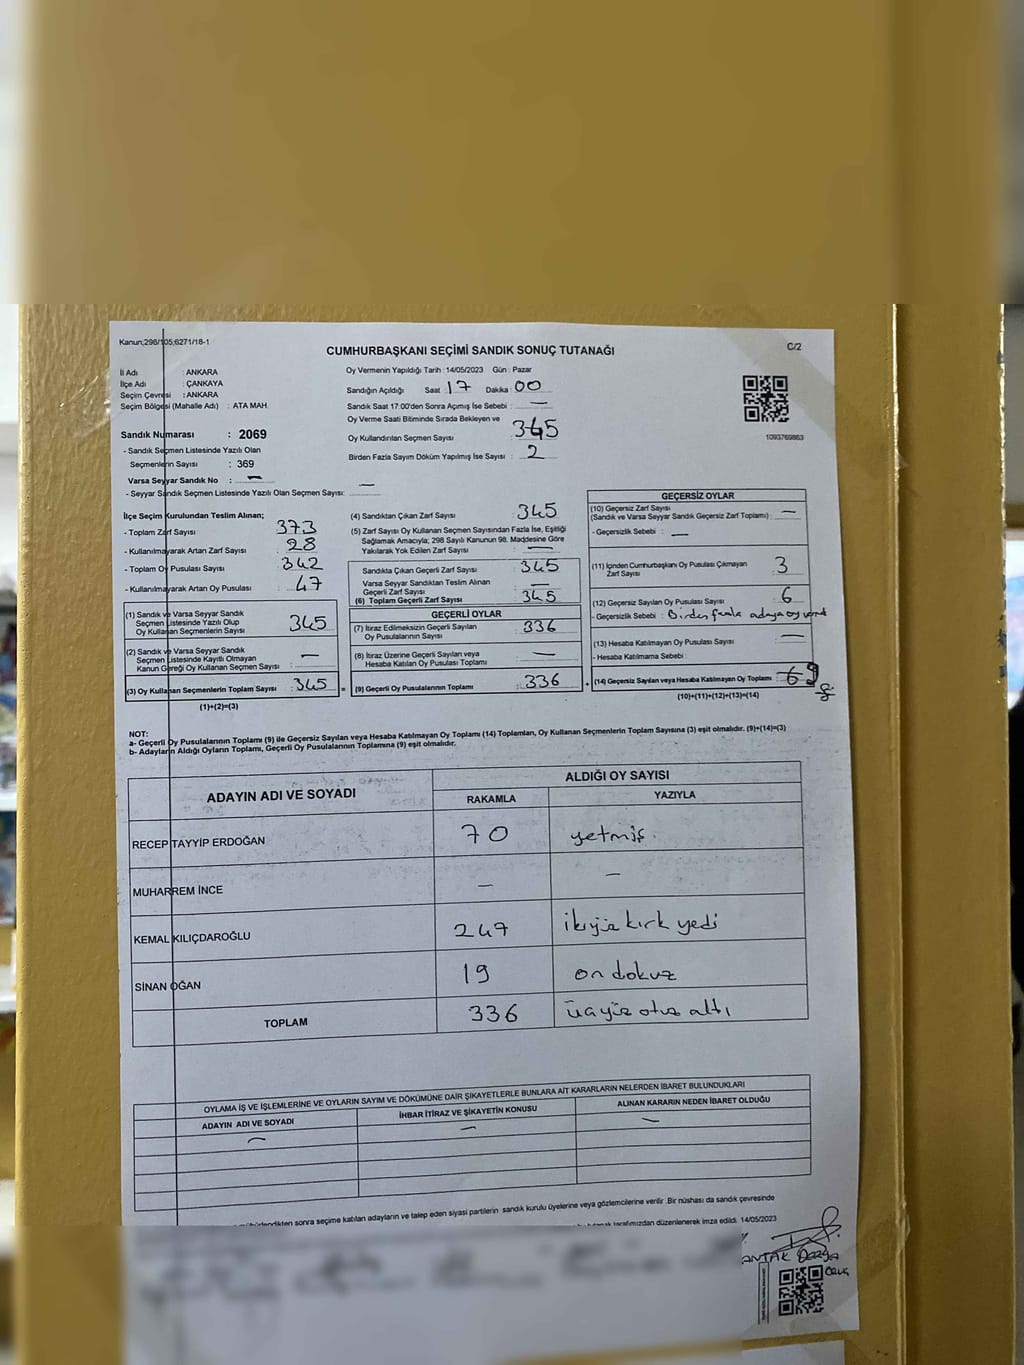 Kanun;298/105;6271/18-1
C/2
CUMHURBAŞKANI SEÇİMİ SANDIK SONUÇ TUTANAĞI
İl Adı : ANKARA
İlçe Adı : ÇANKAYA
Seçim Çevresi : ANKARA
Seçim Bölgesi (Mahalle Adı) : ATA MAH.
Sandık Numarası : 2069
- Sandık Seçmen Listesinde Yazılı Olan
Seçmenlerin Sayısı : 369
Varsa Seyyar Sandık No : —
- Seyyar Sandık Seçmen Listesinde Yazılı Olan Seçmen Sayısı: —
Oy Vermenin Yapıldığı Tarih : 14/05/2023 Gün : Pazar
Sandığın Açıldığı Saat : 17 Dakika : 00
Sandık Saat 17:00'den Sonra Açımış İse Sebebi : —
Oy Verme Saati Bitiminde Sırada Bekleyen ve
Oy Kullandırılan Seçmen Sayısı 345
Birden Fazla Sayım Döküm Yapılmış İse Sayısı : 2
1093769863
İlçe Seçim Kurulundan Teslim Alınan;
- Toplam Zarf Sayısı 373
- Kullanılmayarak Artan Zarf Sayısı 28
- Toplam Oy Pusulası Sayısı 342
- Kullanılmayarak Artan Oy Pusulası 47
(1) Sandık ve Varsa Seyyar Sandık
Seçmen Listesinde Yazılı Olup
Oy Kullanan Seçmenlerin Sayısı 345
(2) Sandık ve Varsa Seyyar Sandık
Seçmen Listesinde Kayıtlı Olmayan
Kanun Gereği Oy Kullanan Seçmen Sayısı —
(3) Oy Kullanan Seçmenlerin Toplam Sayısı : 345 =
(1)+(2)=(3)
(4) Sandıktan Çıkan Zarf Sayısı 345
(5) Zarf Sayısı Oy Kullanan Seçmen Sayısından Fazla İse, Eşitliği
Sağlamak Amacıyla; 298 Sayılı Kanunun 98. Maddesine Göre
Yakılarak Yok Edilen Zarf Sayısı —
Sandıkta Çıkan Geçerli Zarf Sayısı 345
Varsa Seyyar Sandıktan Teslim Alınan
Geçerli Zarf Sayısı —
(6) Toplam Geçerli Zarf Sayısı 345
GEÇERLİ OYLAR
(7) İtiraz Edilmeksizin Geçerli Sayılan
Oy Pusulalarının Sayısı 336
(8) İtiraz Üzerine Geçerli Sayılan veya
Hesaba Katılan Oy Pusulası Toplamı —
(9) Geçerli Oy Pusulalarının Toplamı 336 +
GEÇERSİZ OYLAR
(10) Geçersiz Zarf Sayısı
(Sandık ve Varsa Seyyar Sandık Geçersiz Zarf Toplamı) : —
- Geçersizlik Sebebi : —
(11) İçinden Cumhurbaşkanı Oy Pusulası Çıkmayan
Zarf Sayısı 3
(12) Geçersiz Sayılan Oy Pusulası Sayısı 6
- Geçersizlik Sebebi : Birden fazla adaya oy
(13) Hesaba Katılmayan Oy Pusulası Sayısı —
- Hesaba Katılmama Sebebi
(14) Geçersiz Sayılan veya Hesaba Katılmayan Oy Toplamı : 6 9
(10)+(11)+(12)+(13)=(14)
NOT:
a- Geçerli Oy Pusulalarının Toplamı (9) ile Geçersiz Sayılan veya Hesaba Katılmayan Oy Toplamı (14) Toplamları, Oy Kullanan Seçmenlerin Toplam Sayısına (3) eşit olmalıdır. (9)+(14)=(3)
b- Adayların Aldığı Oyların Toplamı, Geçerli Oy Pusulalarının Toplamına (9) eşit olmalıdır.
ADAYIN ADI VE SOYADI ALDIĞI OY SAYISI
RAKAMLA YAZIYLA
RECEP TAYYİP ERDOĞAN 70 yetmiş.
MUHARREM İNCE — —
KEMAL KILIÇDAROĞLU 247 ikiyüz kırk yedi
SİNAN OĞAN 19 on dokuz
TOPLAM 336 üçyüz otuz altı
OYLAMA İŞ VE İŞLEMLERİNE VE OYLARIN SAYIM VE DÖKÜMÜNE DAİR ŞİKAYETLERLE BUNLARA AİT KARARLARIN NELERDEN İBARET BULUNDUKLARI
ADAYIN ADI VE SOYADI İHBAR İTİRAZ VE ŞİKAYETİN KONUSU ALINAN KARARIN NEDEN İBARET OLDUĞU
— — —
sonra seçime katılan adayların ve talep eden siyasi partilerin sandık kurulu üyelerine veya gözlemcilerine verilir .Bir nüshası da sandık çevresinde
tarafımızdan düzenlenerek imza edildi. 14/05/2023